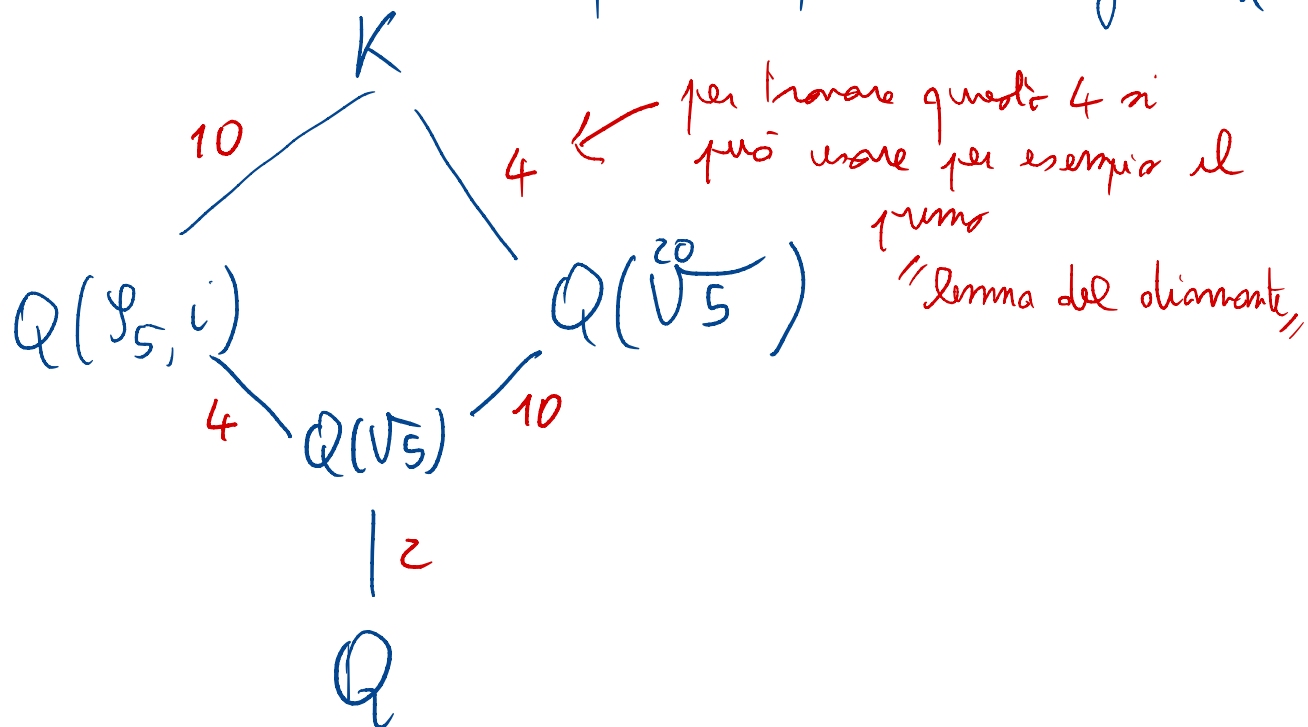 K
per trovare questo 4 si
10
può usare per esempio il
4
primo
"lemma del diamante"
Q(ζ₅, i)
Q(²⁰√5)
4
Q(√5)
10
2
Q